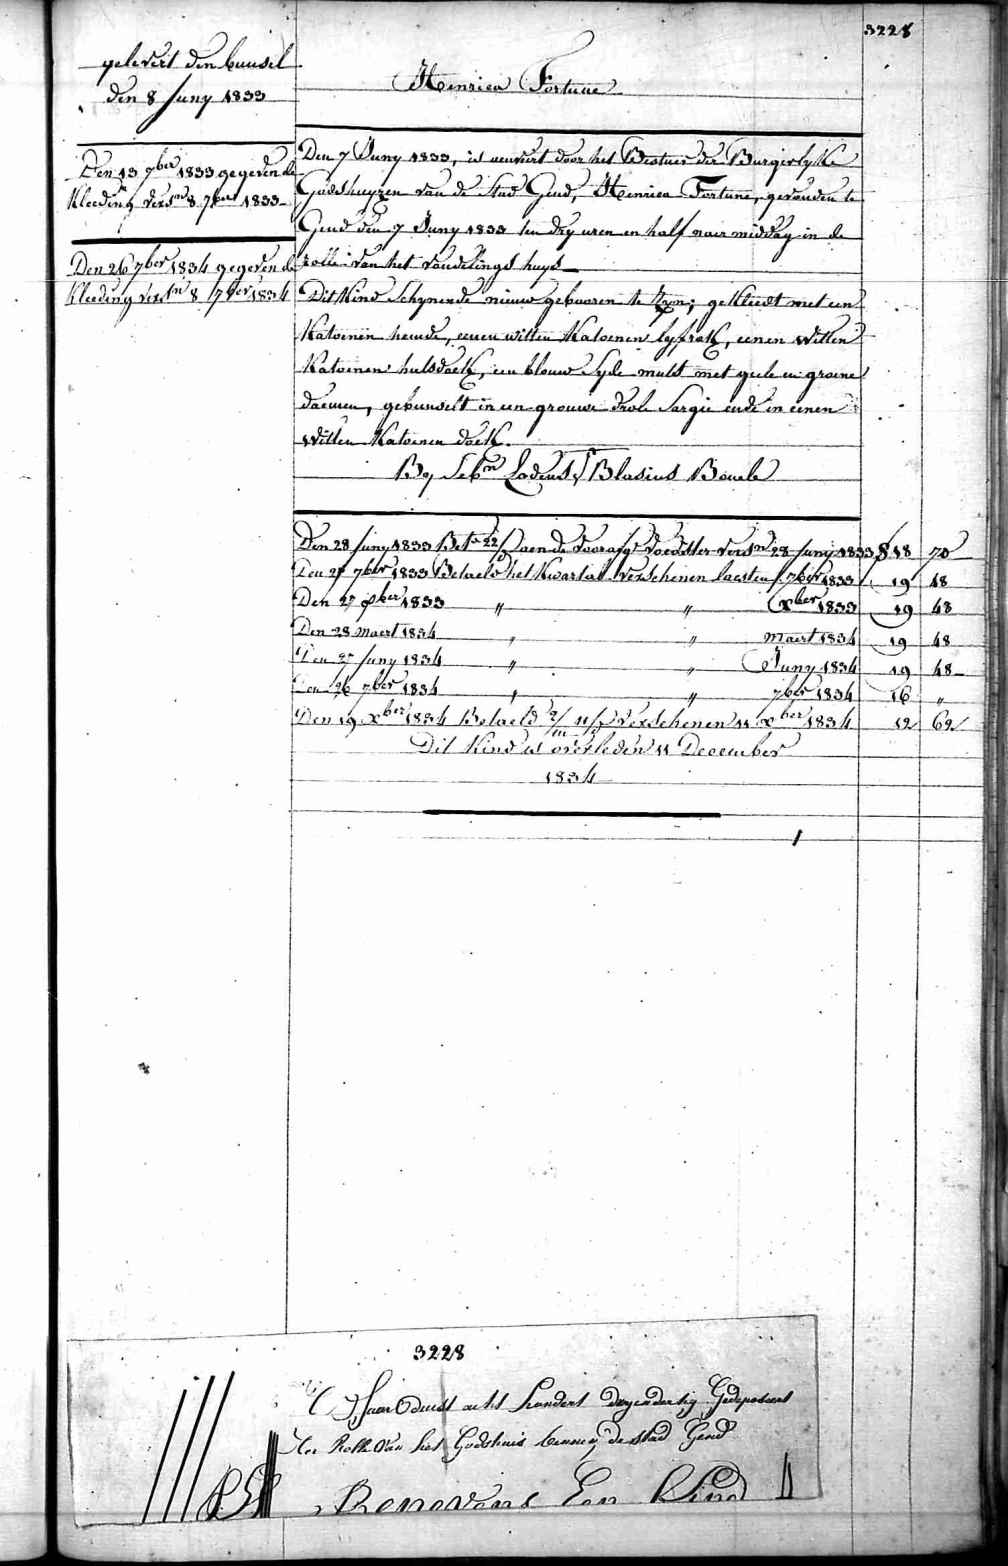 3228
gelevert den bunsel
den 8 Juny 1833
Henrica Fortune
Den 13 7ber 1833 gegeven de
Kleeding versn 8 7ber 1833
Den 26 7ber 1834 gegeven de
Kleeding versn 8 7ber 1834
Den 7 Juny 1833, is aenveirt door het Bestuer der Burgerlyke
Godshuyzen van de Stad Gend, Henrica Fortune, gevonden te
Gend den 7 Juny 1833 ten dry uren en half naer middag in de
rolle van het vondelings huys
Dit Kind Schynende nieuw gebooren te Zyn; gekleedt met een
Katoenen hemde, eenen witten Katoenen lyfrok, eenen witten
Katoenen halsdoek, een blouw Syde muts met geele en groene
, gebunselt in een grouwe Sargie ende in eenen
witten Katoenen doek.
By Sebn Blasius
Den 28 Juny 1833 Bet 22/ aen de voorafge voedster versn 28 Juny 1833 18 70
Den 27 7ber 1833 Betaeld het Kwartal Verschenen laesten 7ber 1833 19 48
Den 27 xber 1833 " " xber 1833 19 48
Den 28 maert 1834 " " maert 1834 19 48
Den 27 Juny 1834 " " Juny 1834 19 48
Den 26 7ber 1834 " " 7ber 1834 16 "
Den 19 xber 1834 Betaeld 2/m 11/ Verschenen 11 xber 1834 12 62
Dit Kind is overleden 11 December
1834
3228
Jaar duist acht hondert dryendertig Gedeponeert
ter Rolle van het Godshuis binnen de stad Gend
Benevens Een Kind